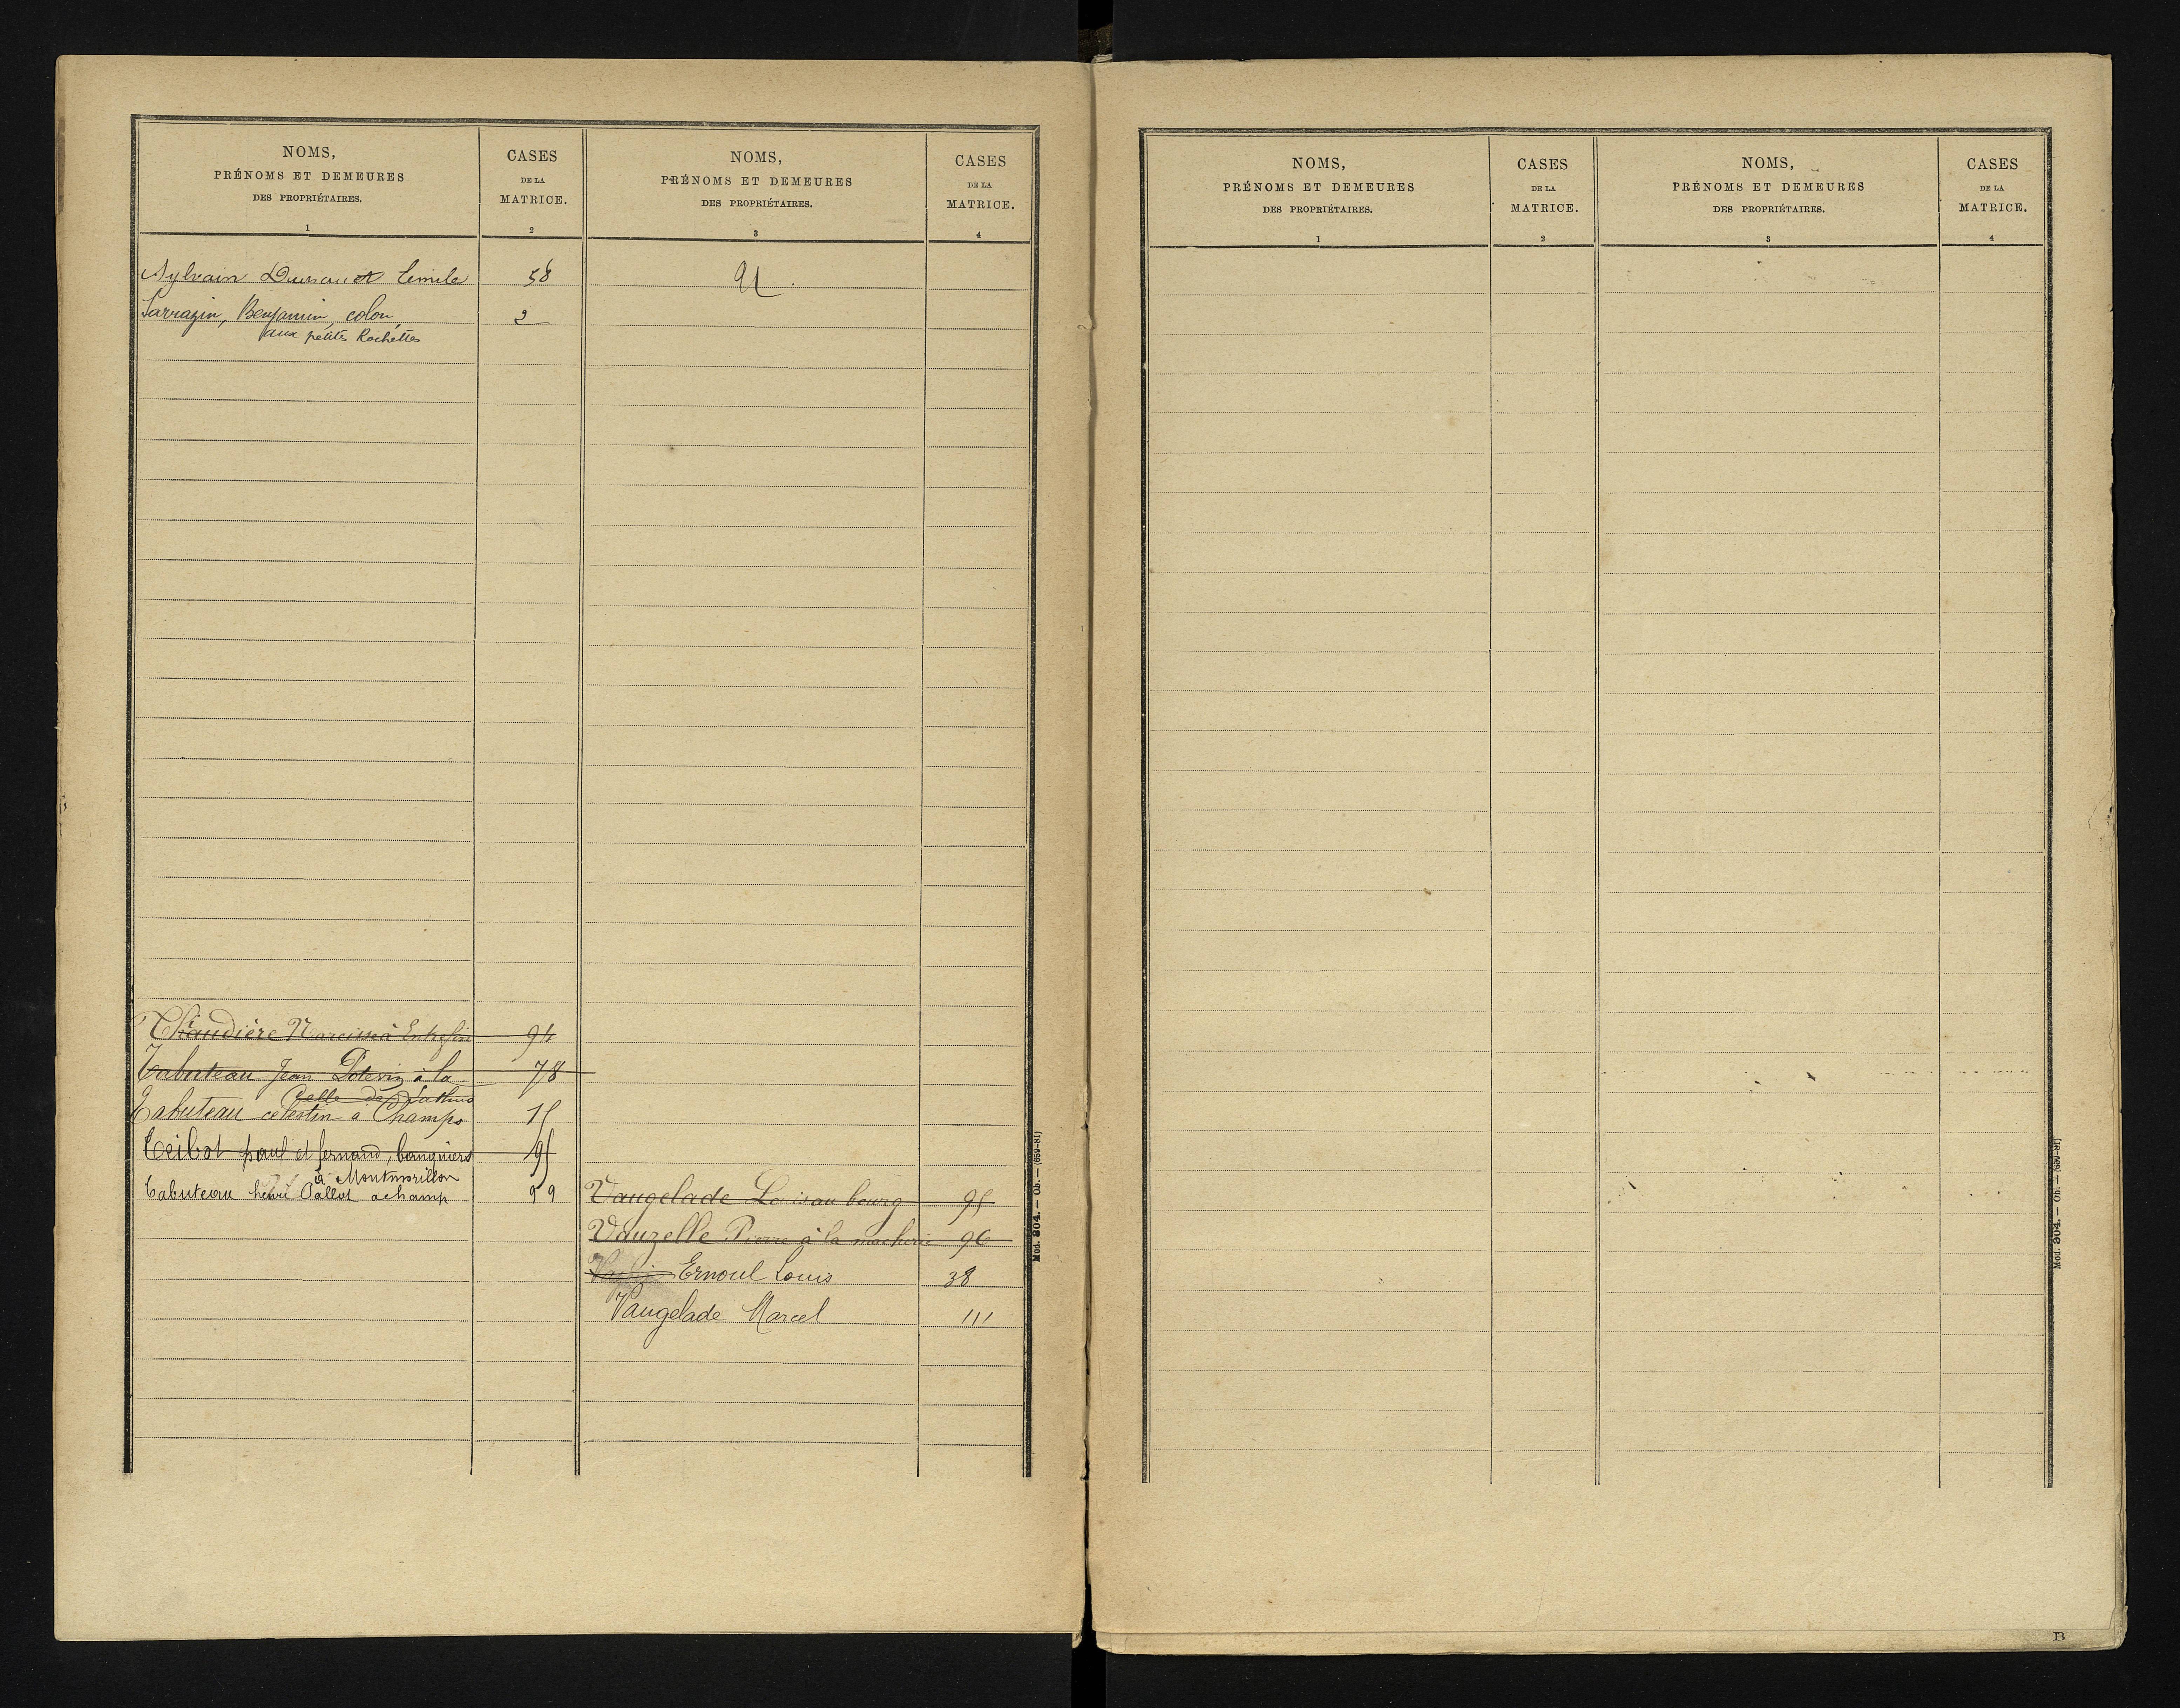 NOMS,
PRÉNOMS ET DEMEURES
DES PROPRIÉTAIRES.
1
CASES
DE LA
MATRICE.
2
NOMS,
PRÉNOMS ET DEMEURES
DES PROPRIÉTAIRES.
3
CASES
DE LA
MATRICE.
4
Sylvain 58
Sarrazin, Benjamin, colon 2
aux petites Rochettes
Thaudière à 94
Tabuteau Jean Potevin à la 78
Celle de Lathus
Tabuteau celestin a Champs 15
Teibot paul et fernand, banquiers 95
à Montmorillon
Tabuteau henri Pallot a champ 99
Vaugelade Louis au bourg 95
Vauzelle Pierre à la 96
Ernoul Louis 38
Vaugelade Marcel 111
Mod. 304. — Ob. — (659-81)
NOMS,
PRÉNOMS ET DEMEURES
DES PROPRIÉTAIRES.
1
CASES
DE LA
MATRICE.
2
NOMS,
PRÉNOMS ET DEMEURES
DES PROPRIÉTAIRES.
3
CASES
DE LA
MATRICE.
4
Mod. 304. — Ob. — (659-81)
B